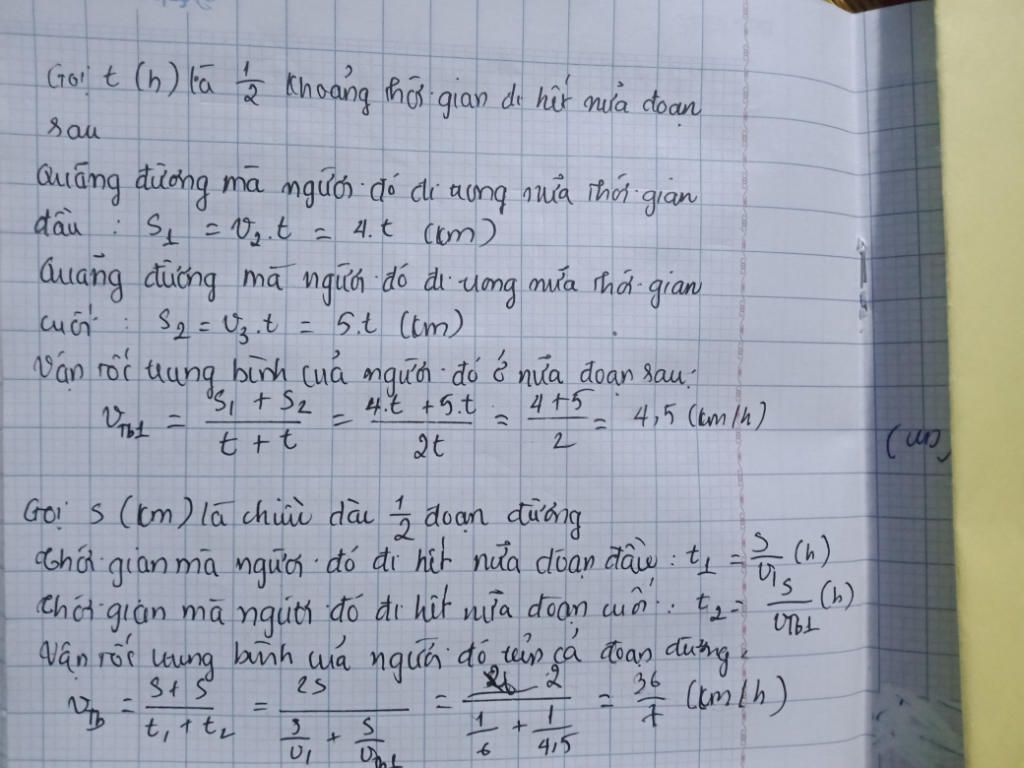 Gọi t (h) là 1/2 khoảng thời gian đi hết nửa đoạn
sau
Quãng đường mà người đó đi trong nửa thời gian
đầu : S₁ = v₂.t = 4.t (km)
Quãng đường mà người đó đi trong nửa thời gian
cuối : S₂ = v₃.t = 5.t (km)
Vận tốc trung bình của người đó ở nửa đoạn sau:
v_Tb1 = (S₁ + S₂)/(t + t) = (4.t + 5.t)/2t = (4+5)/2 = 4,5 (km/h)
(km)
Gọi s (km) là chiều dài 1/2 đoạn đường
thời gian mà người đó đi hết nửa đoạn đầu : t₁ = s/v₁ (h)
thời gian mà người đó đi hết nửa đoạn cuối : t₂ = s/v_Tb1 (h)
Vận tốc trung bình của người đó trên cả đoạn đường :
v_Tb = (s + s)/(t₁ + t₂) = 2s/(s/v₁ + s/v_Tb1) = 2/(1/6 + 1/4,5) = 36/7 (km/h)